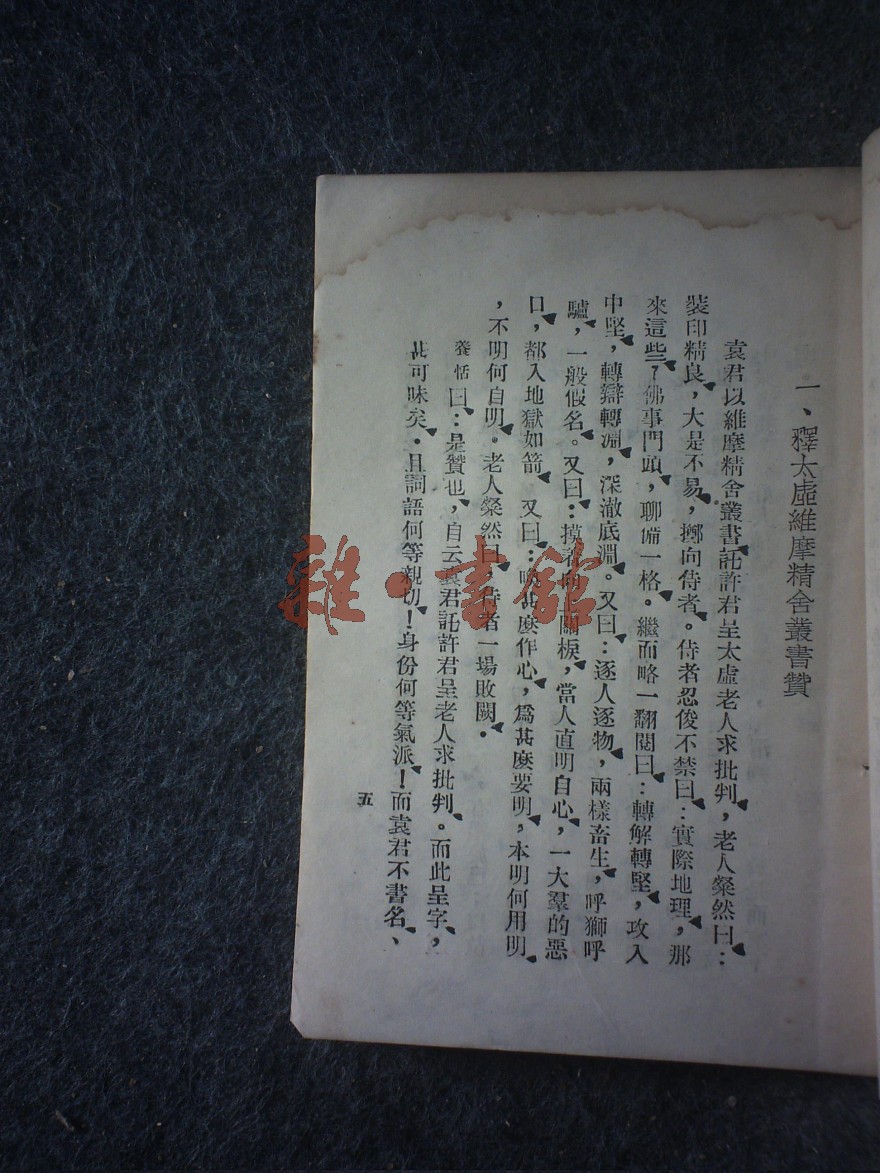 一、釋太虛維摩精舍叢書贊
袁君以維摩精舍叢書，託許君呈太虛老人求批判，老人粲然曰：
裝印精良，大是不易，擲向侍者。侍者忍俊不禁曰：實際地理，那
來這些？佛事門頭，聊備一格。繼而略一翻閱曰：轉解轉堅，攻入
中堅，轉辯轉淵，深澈底淵。又曰：逐人逐物，兩樣畜生，呼獅呼
驢，一般假名。又曰：摸著向上關棙，當人直明自心，一大羣的惡
口，都入地獄如箭。又曰：喚甚麼作心，為甚麼要明，本明何用明
，不明何自明。老人粲然曰，侍者一場敗闕．
養恬曰：是贊也，自云袁君託許君呈老人求批判。而此呈字，
甚可味矣．且詞語何等親切！身份何等氣派！而袁君不書名、
五
雜·書館